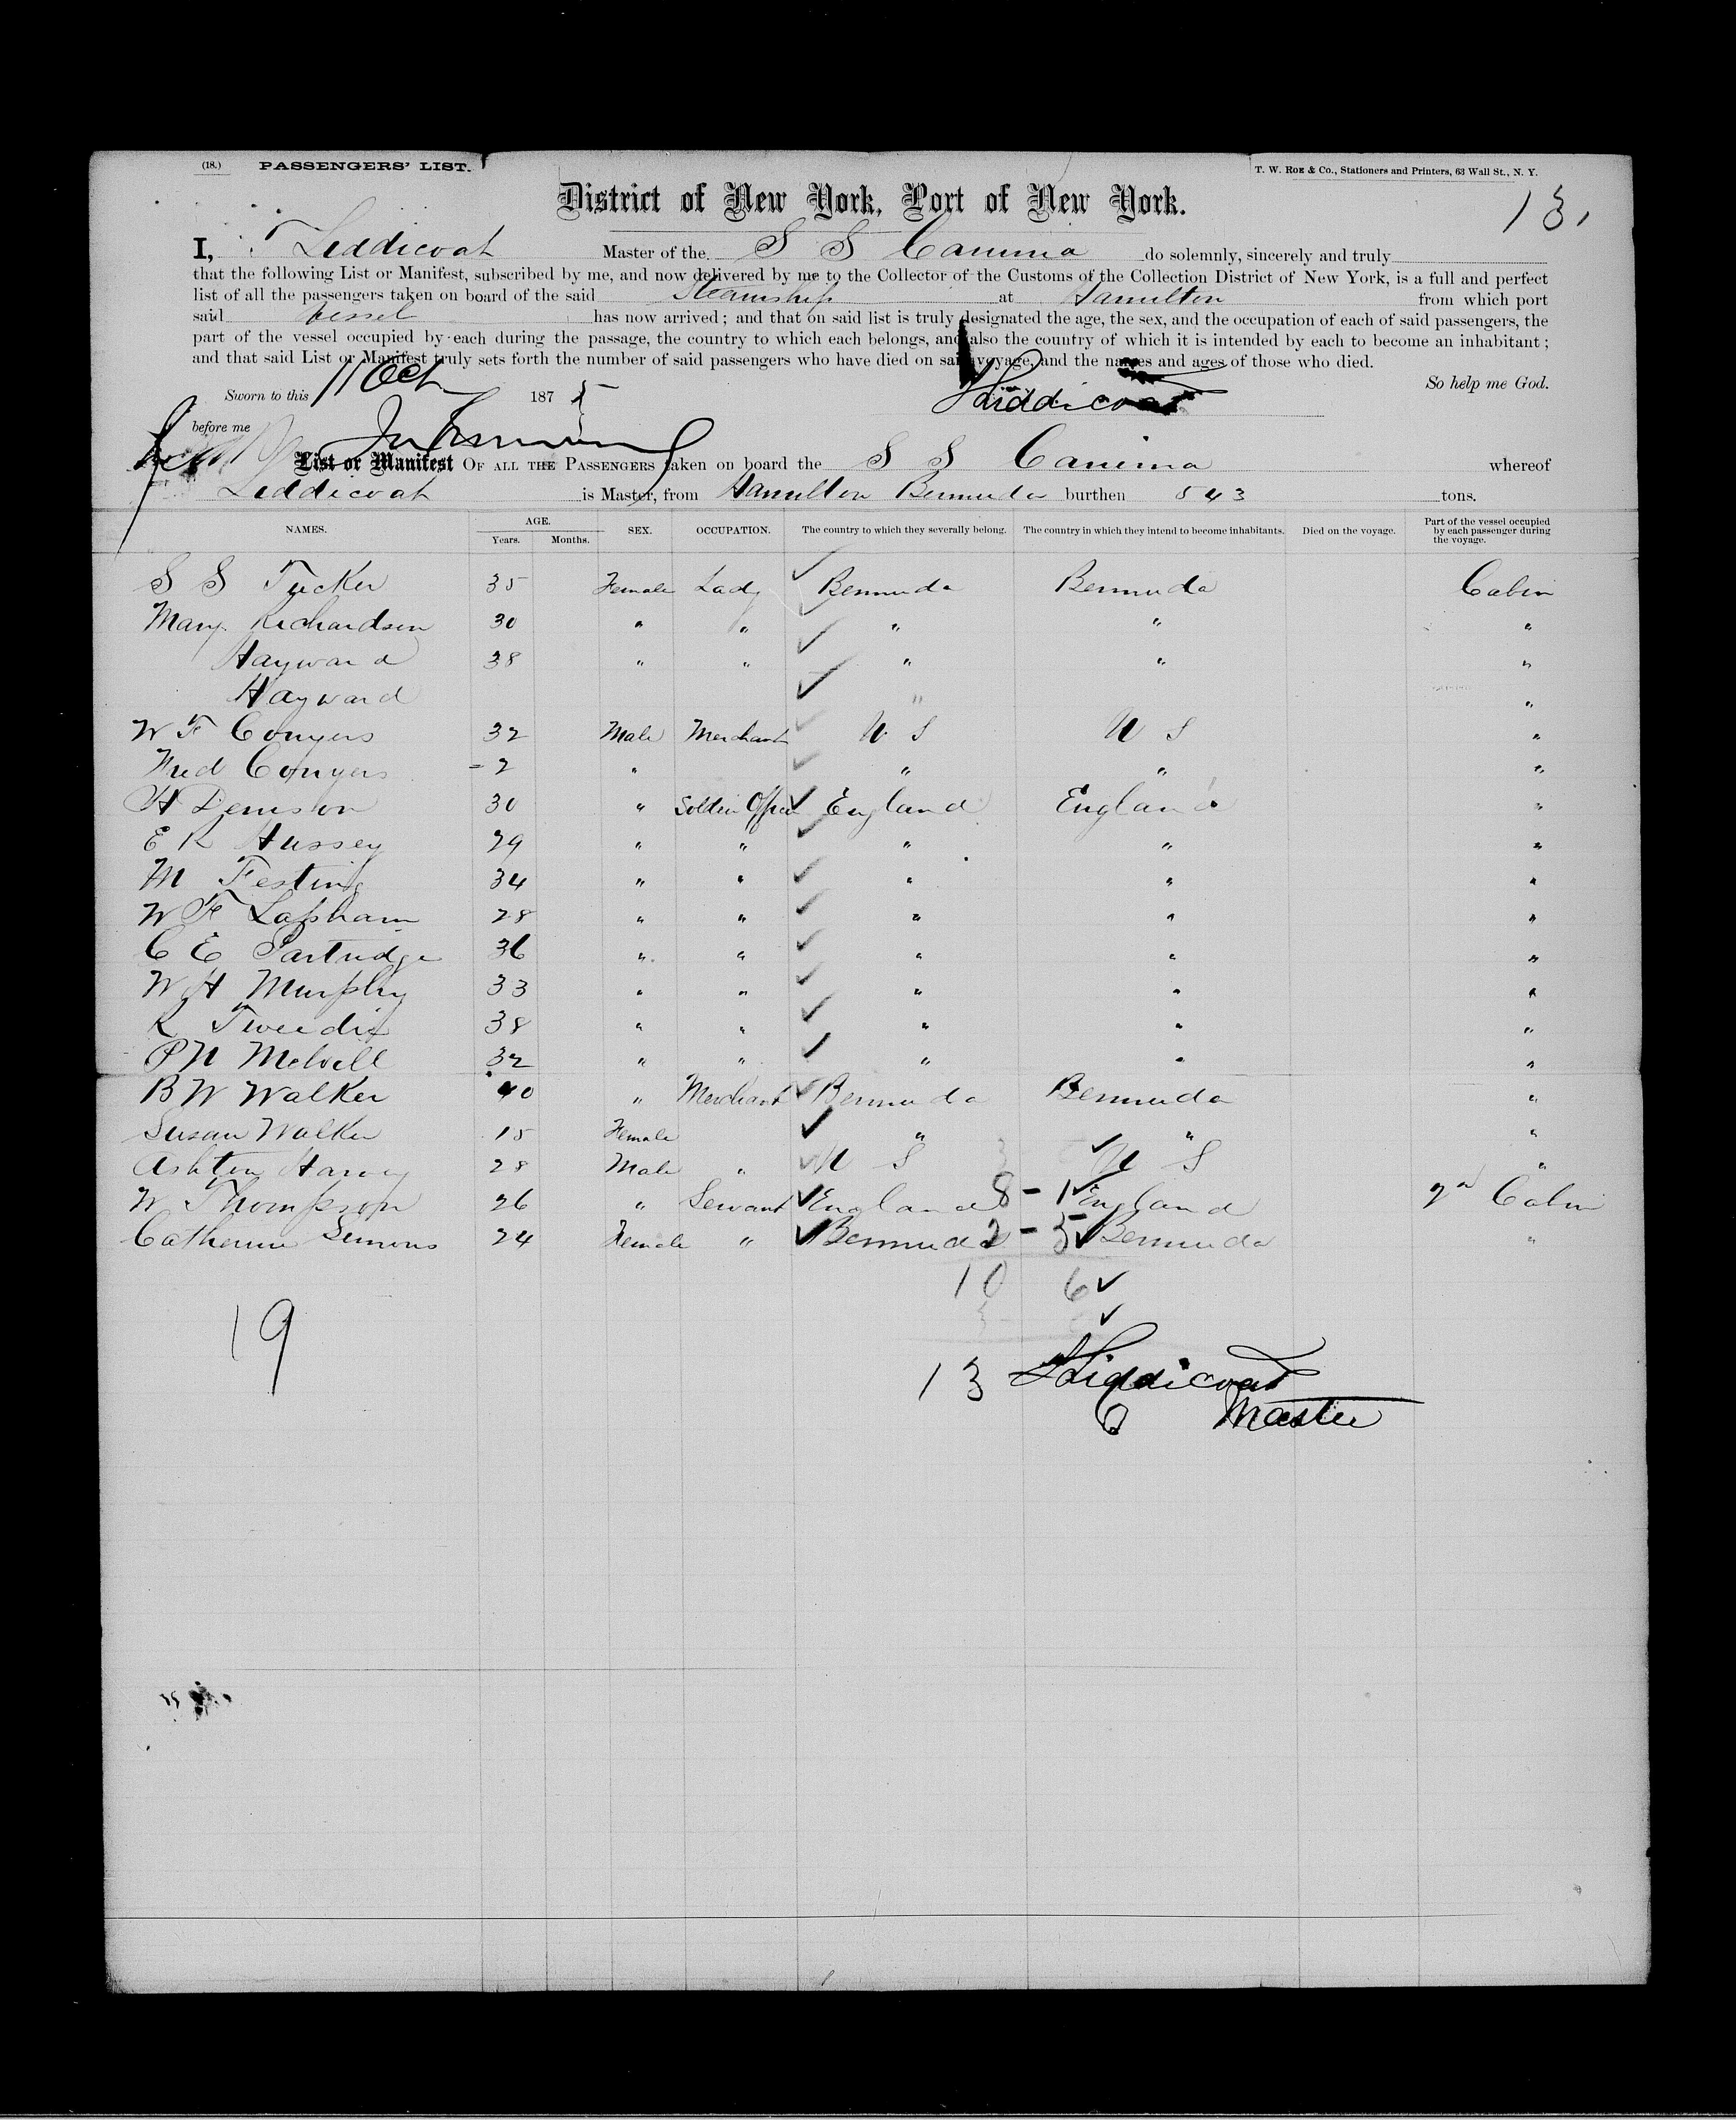 (18.) PASSENGERS' LIST. T. W. ROE & Co., Stationers and Printers, 63 Wall St., N. Y.
District of New York, Port of New York.
131
I, Liddicoat Master of the S S Canima do solemnly, sincerely and truly
that the following List or Manifest, subscribed by me, and now delivered by me to the Collector of the Customs of the Collection District of New York, is a full and perfect
list of all the passengers taken on board of the said Steamship at Hamilton from which port
said Vessel has now arrived; and that on said list is truly designated the age, the sex, and the occupation of each of said passengers, the
part of the vessel occupied by each during the passage, the country to which each belongs, and also the country of which it is intended by each to become an inhabitant;
and that said List or Manifest truly sets forth the number of said passengers who have died on said voyage, and the names and ages of those who died.
So help me God.
Sworn to this 11 Oct 1875 Liddicoat
before me
List or Manifest OF ALL THE PASSENGERS taken on board the S S Canima whereof
Liddicoat is Master, from Hamilton Bermuda burthen 543 tons.
NAMES. AGE. Years. Months. SEX. OCCUPATION. The country to which they severally belong. The country in which they intend to become inhabitants. Died on the voyage. Part of the vessel occupied by each passenger during the voyage.
S S Tucker 35 Female Lady Bermuda Bermuda Cabin
Mary Richardson 30 " " " " "
Hayward 38 " " " " "
Hayward " "
W F Conyers 32 Male Merchant U S U S "
Fred Conyers 2 " " " "
H Denison 30 " England England "
E R Hussey 29 " " " " "
M Festing 34 " " " " "
W F Lapham 28 " " " " "
C E Partridge 36 " " " " "
W H Murphy 33 " " " " "
R Tweedie 38 " " " " "
P N Melvill 32 " " " " "
B W Walker 40 " Merchant Bermuda Bermuda "
Susan Walker 15 Female " " "
Ashton Harvey 28 Male " U S U S "
W Thompson 26 " Servant England 8 - 1 England 2nd Cabin
Catherine Simons 24 Female " Bermuda 2 - 5 Bermuda "
10 6
19
13 Liddicoat
Master